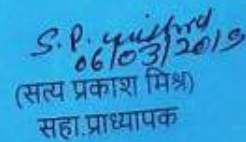 S.P.
06/03/2019
(सत्य प्रकाश मिश्र)
सहा.प्राध्यापक